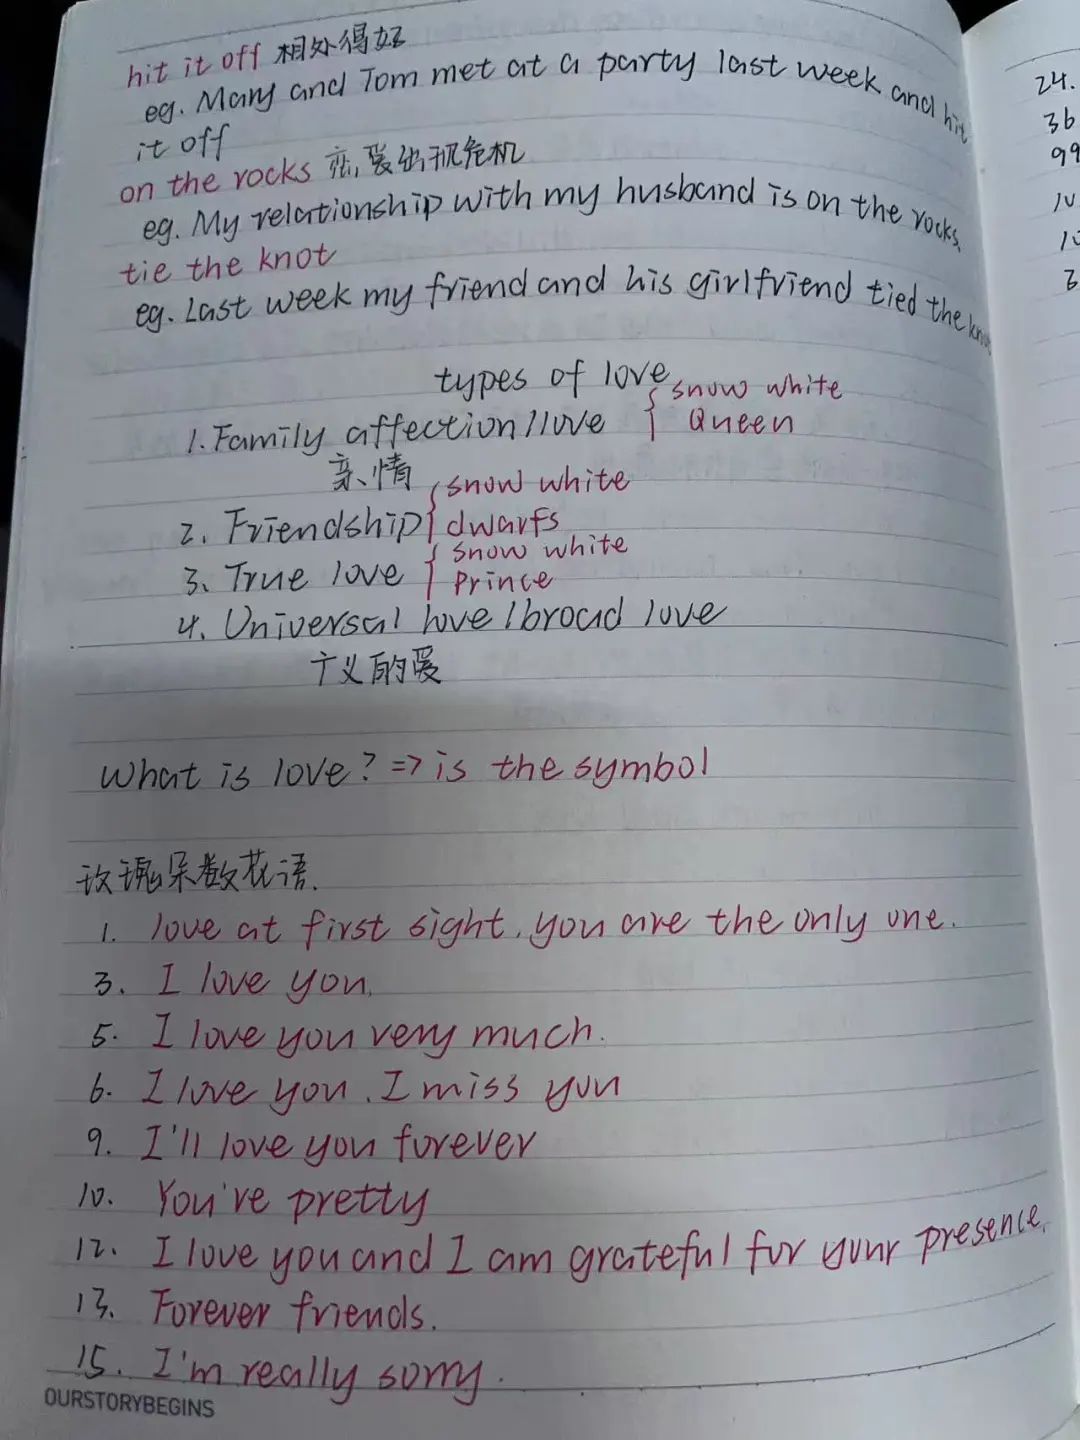 hit it off 相处得好
eg. Mary and Tom met at a party last week and hit
it off
on the rocks 恋爱出现危机
eg. My relationship with my husband is on the rocks.
tie the knot
eg. Last week my friend and his girlfriend tied the knot
types of love
1. Family affection/love { snow white
Queen
亲情
2. Friendship { snow white
dwarfs
3. True love { snow white
Prince
4. Universal love/broad love
广义的爱
What is love? => is the symbol
玫瑰朵数花语.
1. love at first sight. you are the only one.
3. I love you.
5. I love you very much.
6. I love you. I miss you
9. I'll love you forever
10. You're pretty
12. I love you and I am grateful for your presence.
13. Forever friends.
15. I'm really sorry.
OURSTORYBEGINS
24.
36
99